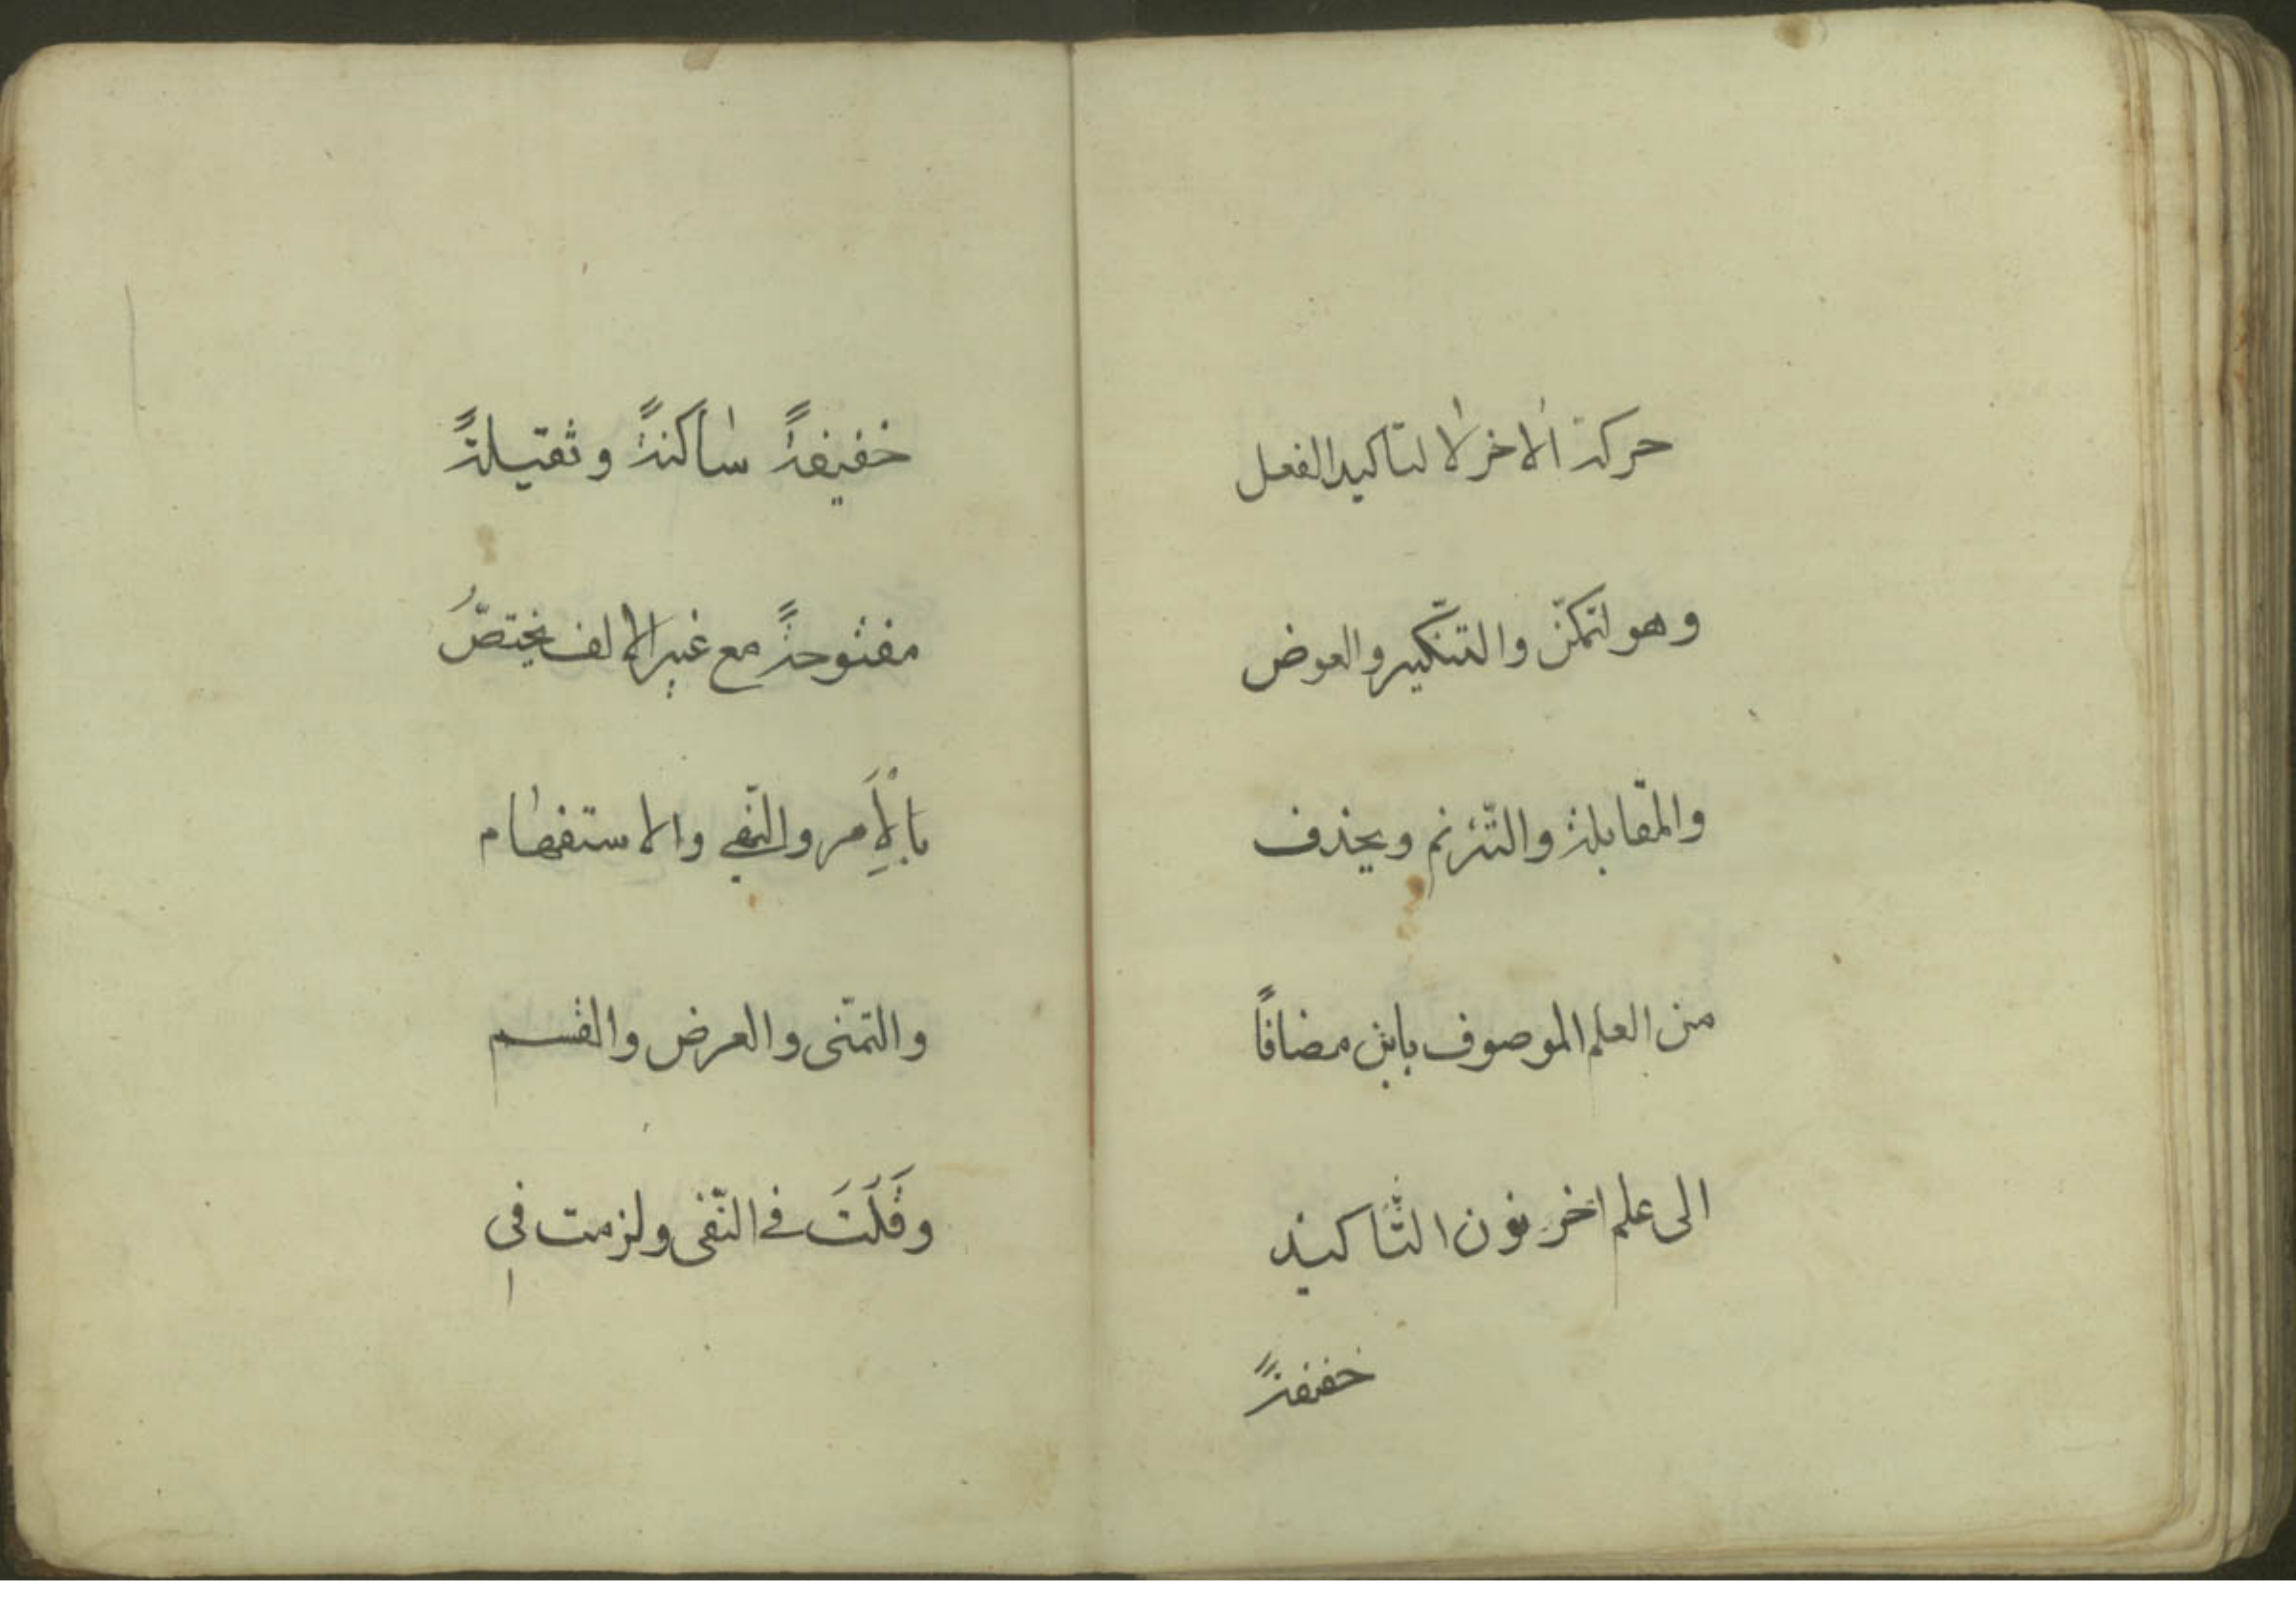 حركة الاخر لا لتاكيد الفعل
وهو لتمكّن والتنكّير والعوض
والمقابلة والتّرنم ويحذف
من العلم الموصوف بابن مضافاً
الى علم اخر نون التّاكيد
خفيفةً
خفيفةً ساكنةً وثقيلةً
مفتوحةً مع غير الالف يختصُّ
بالْاَمر والنّهى والاستفهام
والتمنّى والعرض والقسم
وقَلَّتَ فى النّفى ولزمت فى